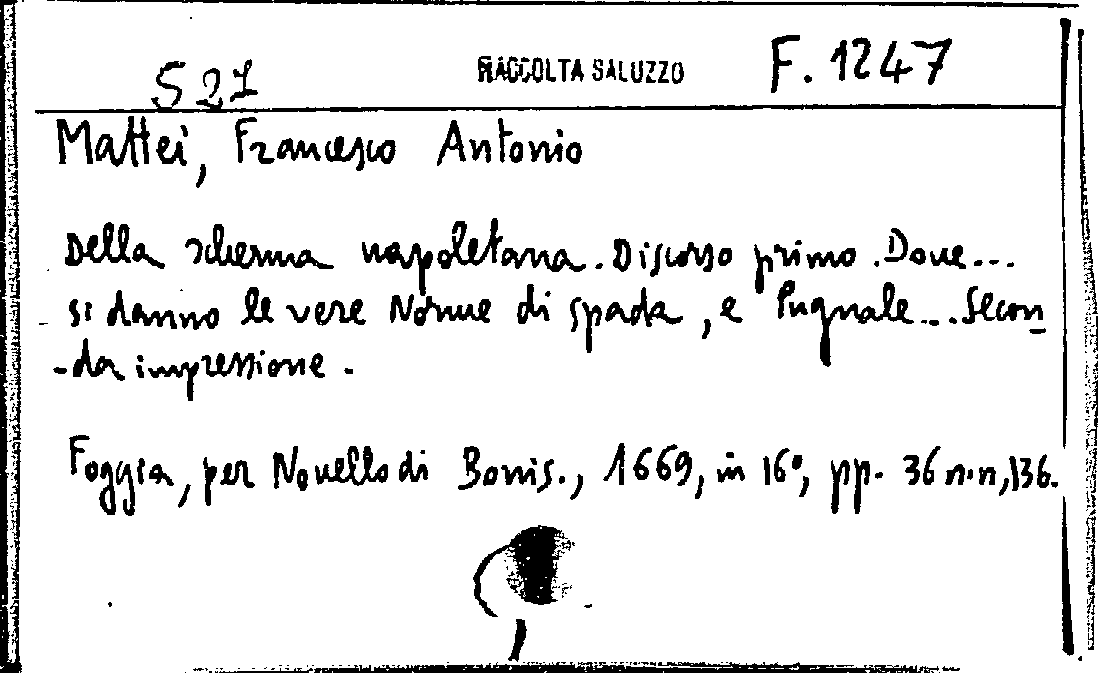 527 RACCOLTA SALUZZO F. 1247
Mattei, Francesco Antonio
Della scherma napoletana. Discorso primo. Doue...
si danno le vere Norme di spada, e Pugnale... Secon
-da impressione.
Foggia, per Nouello di Bonis., 1669, in 16°, pp. 36 n.n, 136.